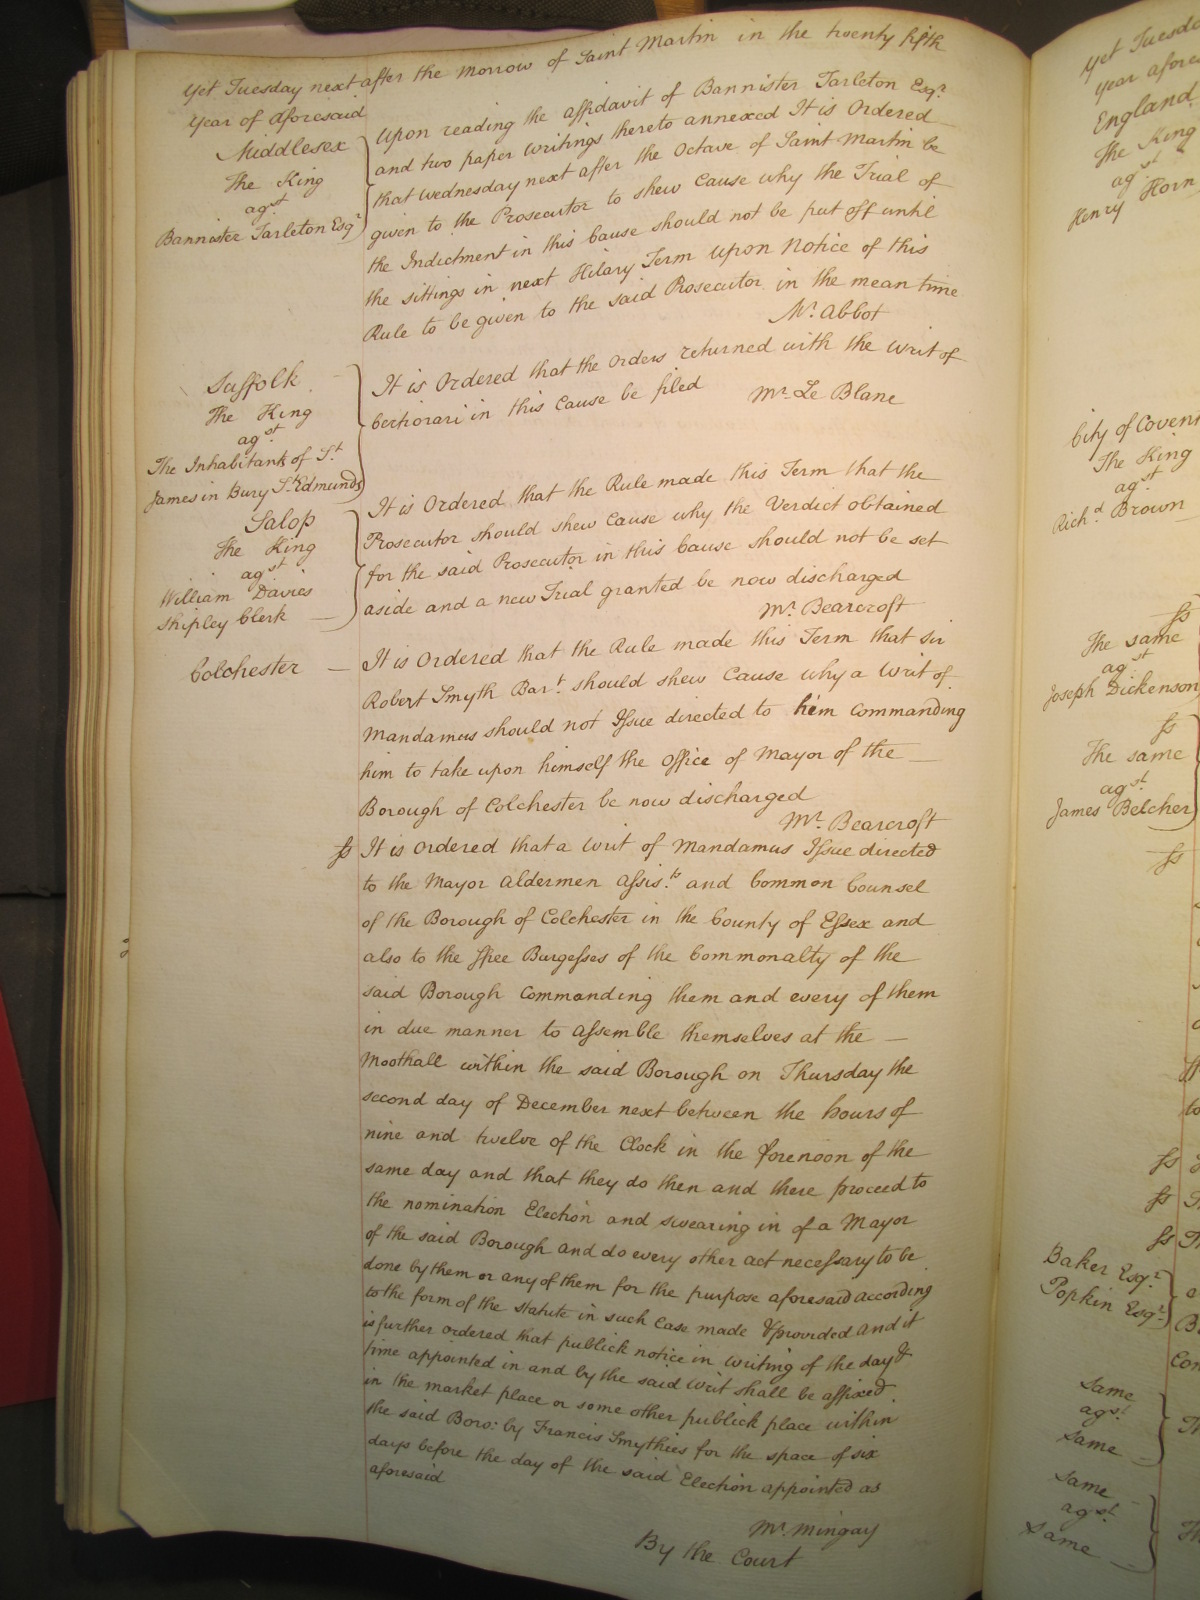 Yet Tuesday next after the Morrow of Saint Martin in the twenty fifth
Year of aforesaid
Middlesex
The King
agst.
Bannister Tarleton Esqr.
Upon reading the affidavit of Bannister Tarleton Esqr.
and two paper writings thereto annexed It is Ordered
that Wednesday next after the Octave of Saint Martin be
given to the Prosecutor to shew Cause why the Trial of
the Indictment in this Cause should not be put off until
the sittings in next Hilary Term upon Notice of this
Rule to be given to the said Prosecutor in the mean time
Mr. Abbot
Suffolk
The King
agst.
The Inhabitants of St.
James in Bury St. Edmunds
It is Ordered that the Orders returned with the Writ of
Certiorari in this Cause be filed
Mr. Le Blanc
Salop
The King
agst.
William Davies
Shipley Clerk
It is Ordered that the Rule made this Term that the
Prosecutor should shew Cause why the Verdict obtained
for the said Prosecutor in this Cause should not be set
aside and a new Trial granted be now discharged
Mr. Bearcroft
Colchester
It is Ordered that the Rule made this Term that Sir
Robert Smyth Bart. should shew Cause why a Writ of
Mandamus should not Issue directed to him Commanding
him to take upon himself the Office of Mayor of the
Borough of Colchester be now discharged
Mr. Bearcroft
ss It is Ordered that a Writ of Mandamus Issue directed
to the Mayor Aldermen Assis.ts and Common Counsel
of the Borough of Colchester in the County of Essex and
also to the ffree Burgesses of the Commonalty of the
said Borough Commanding them and every of them
in due manner to Assemble themselves at the
Moothall within the said Borough on Thursday the
second day of December next between the hours of
nine and twelve of the Clock in the forenoon of the
same day and that they do then and there proceed to
the nomination Election and swearing in of a Mayor
of the said Borough and do every other act necessary to be
done by them or any of them for the purpose aforesaid according
to the form of the statute in such Case made & provided and it
is further ordered that publick notice in writing of the day &
time appointed in and by the said Writ shall be affixed
in the market place or some other publick place within
the said Boro: by Francis Smythies for the space of six
days before the day of the said Election appointed as
aforesaid
Mr. Mingay
By the Court
Yet Tuesda
Year afore
England
The King
agst.
Henry Horn
City of Covent
The King
agst.
Richd. Brown
ss
The same
agst.
Joseph Dickenson
ss
The same
agst.
James Belcher
ss
ss
ss
ss
Baker Esqr.
Popkin Esqr.
Same
agst.
Same
Same
agst.
Same